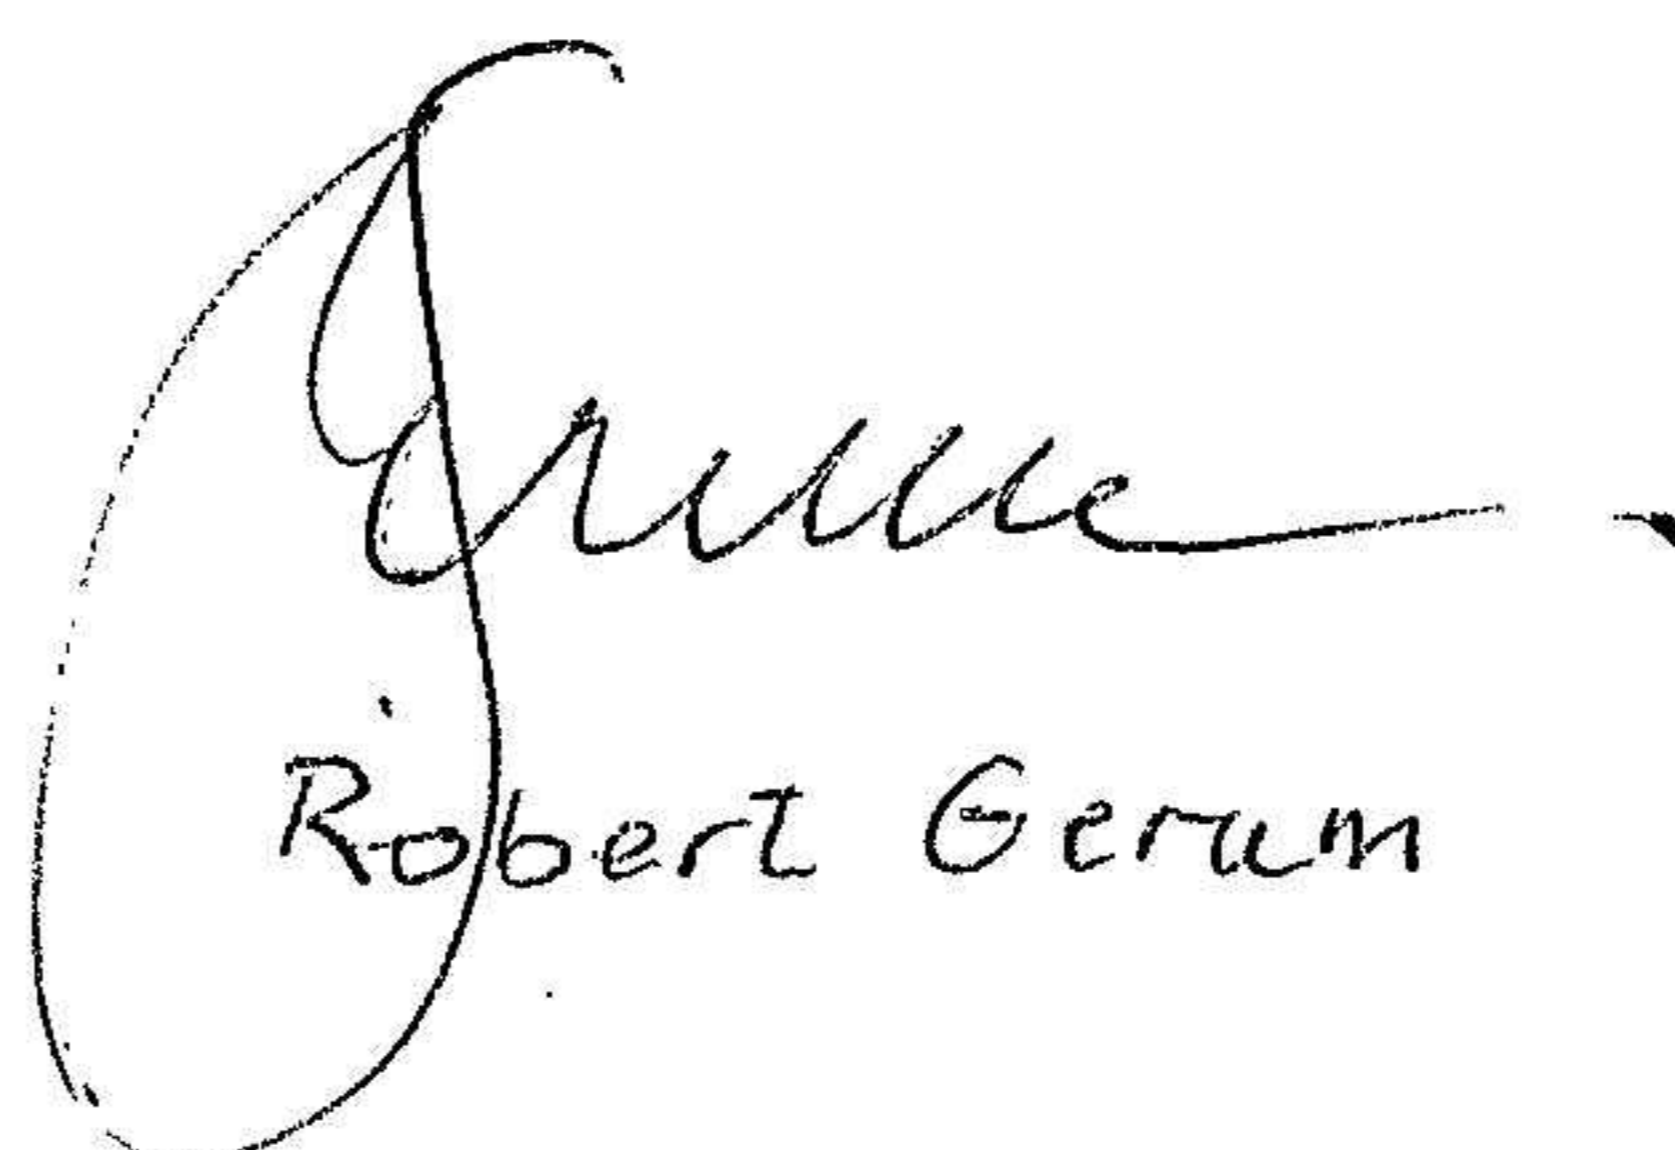 Robert Gerum